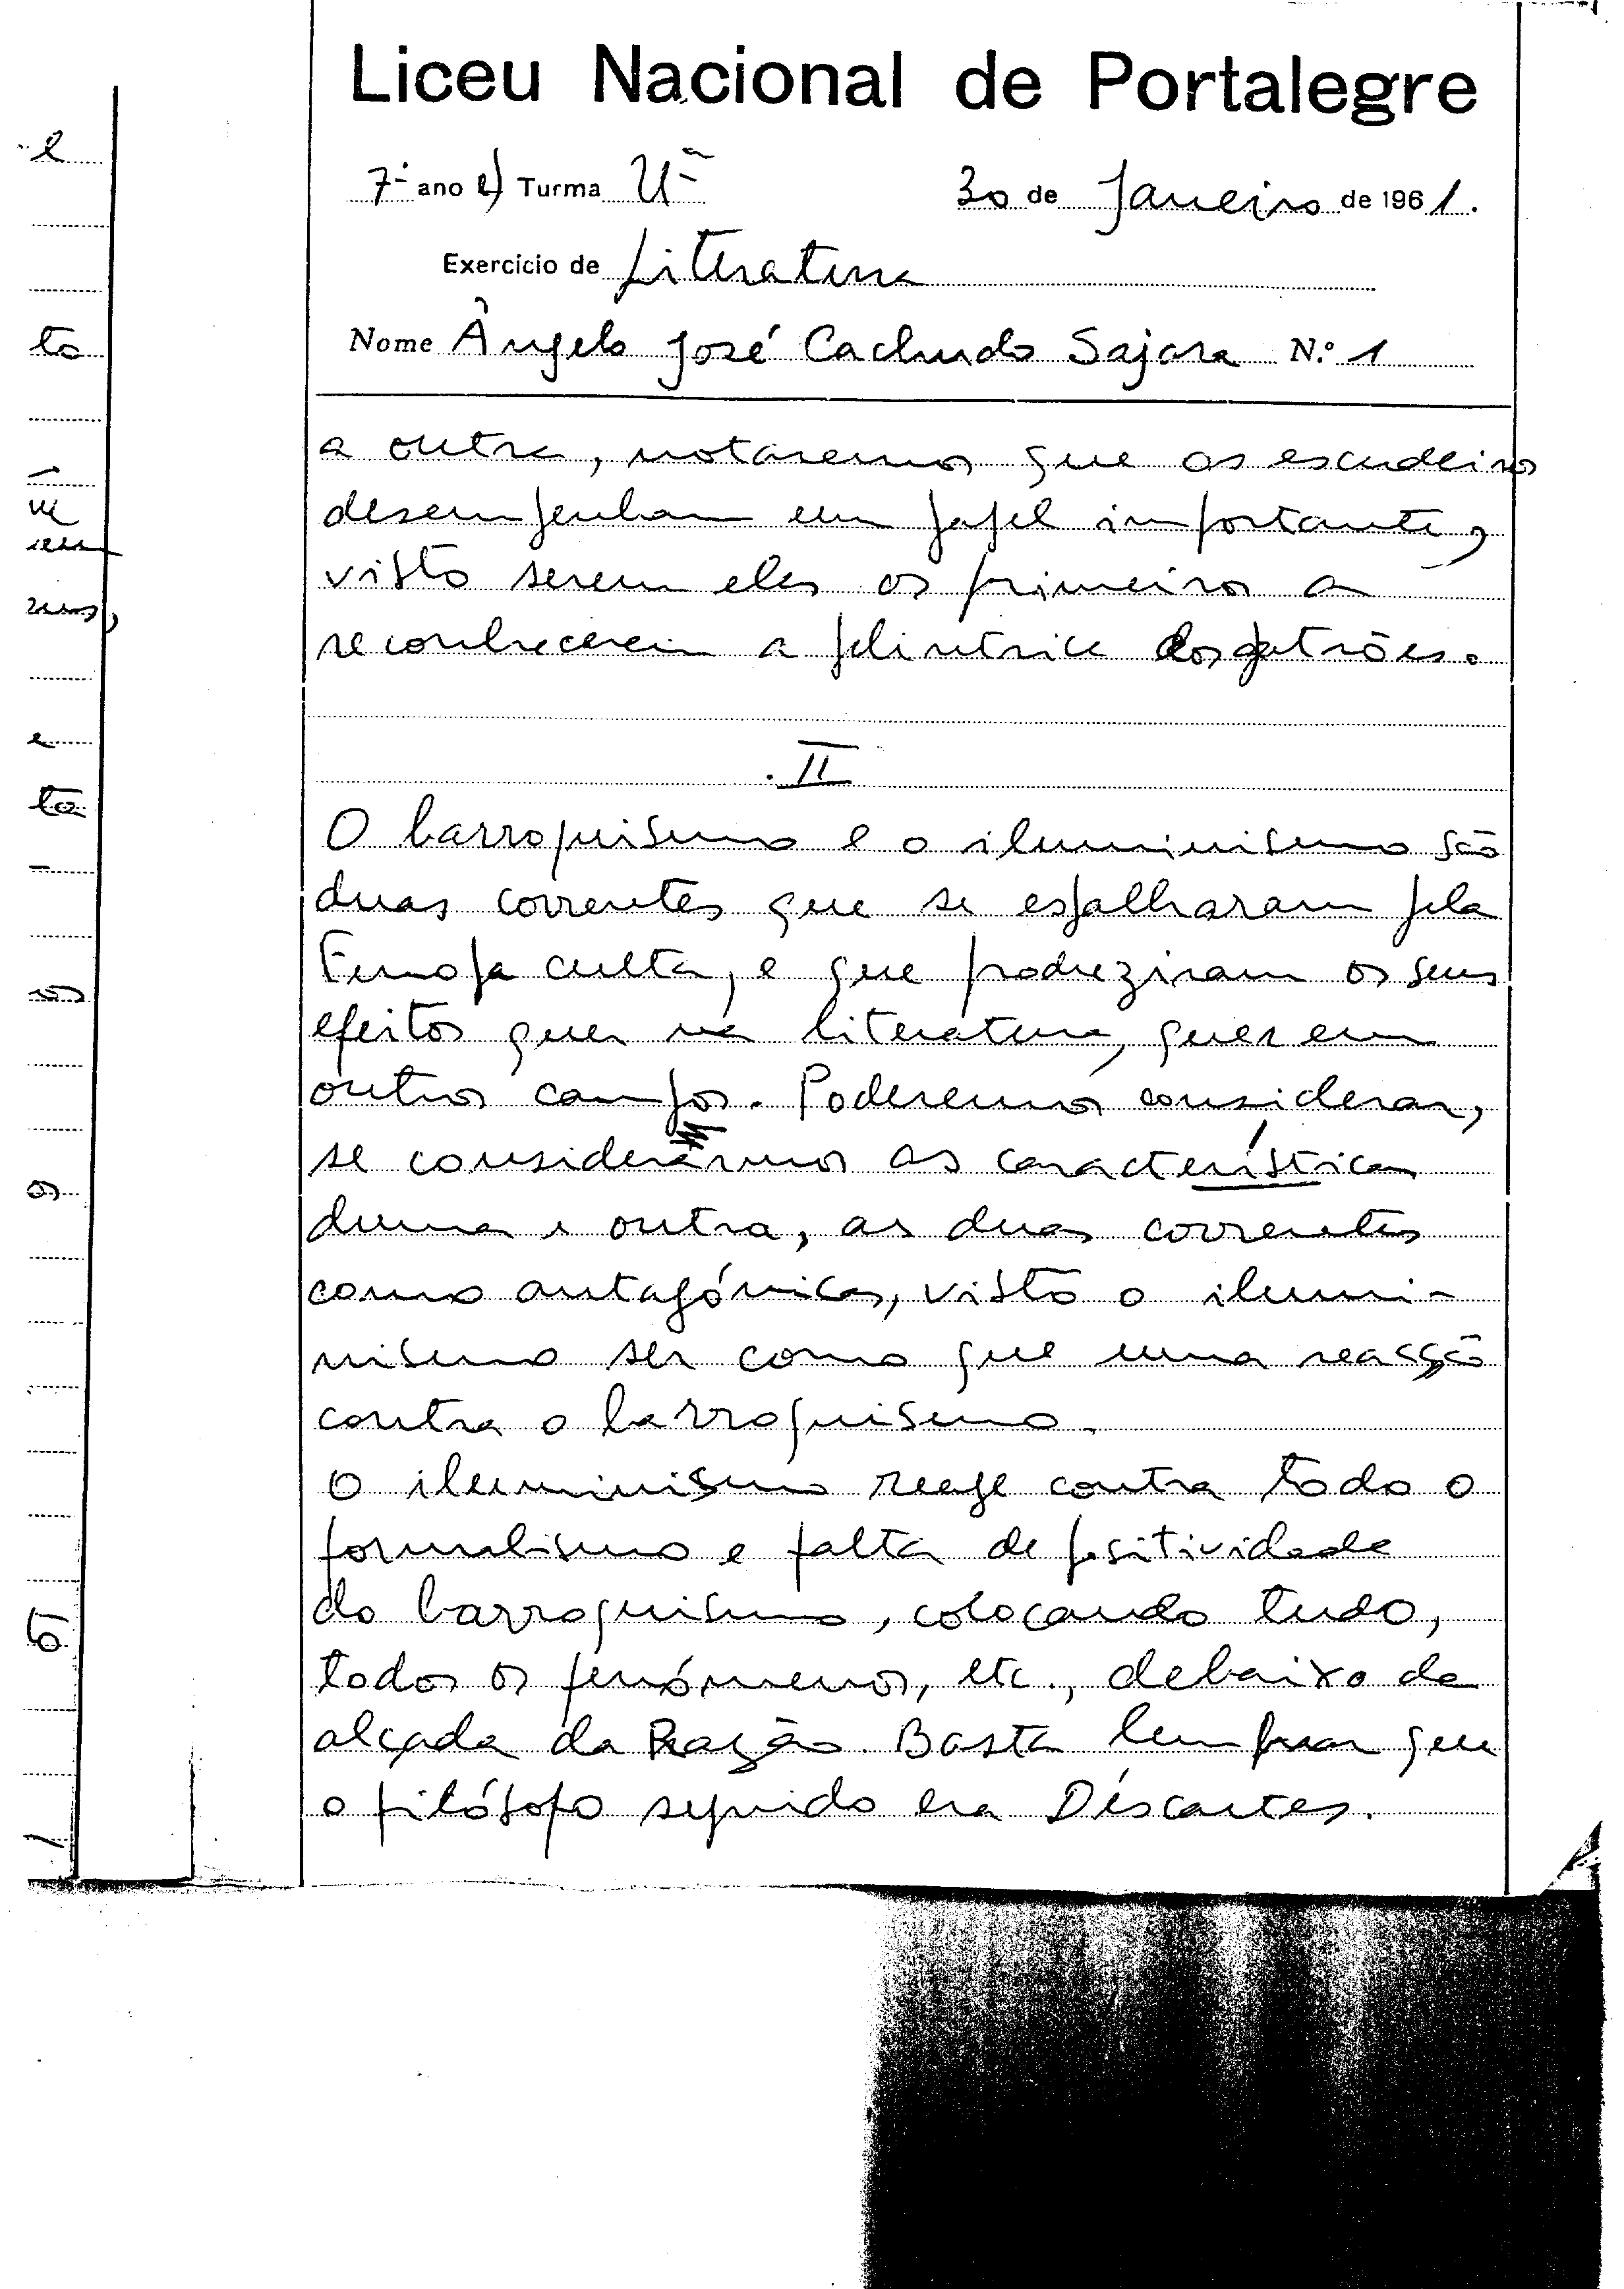 Liceu Nacional de Portalegre
7º ano e) Turma Uª 30 de Janeiro de 1961.
Exercício de Literatura
Nome Ângelo José Cachudo Sajara N.º 1
a outra, notaremos que os escudeiros
desempenham um papel importante,
visto serem eles os primeiros a
reconhecerem a pelintrice dos patrões.
II
O barroquismo e o iluminismo são
duas correntes que se espalharam pela
Europa culta, e que produziram os seus
efeitos quer na literatura, quer em
outros campos. Poderemos considerar,
se considerarmos as características
duma e outra, as duas correntes
como antagónicas, visto o ilumi-
nismo ser como que uma reacção
contra o barroquismo.
O iluminismo reage contra todo o
formalismo e falta de positividade
do barroquismo, colocando tudo,
todos os fenómenos, etc., debaixo da
alçada da Razão. Basta lembrar que
o filósofo seguido era Déscartes.